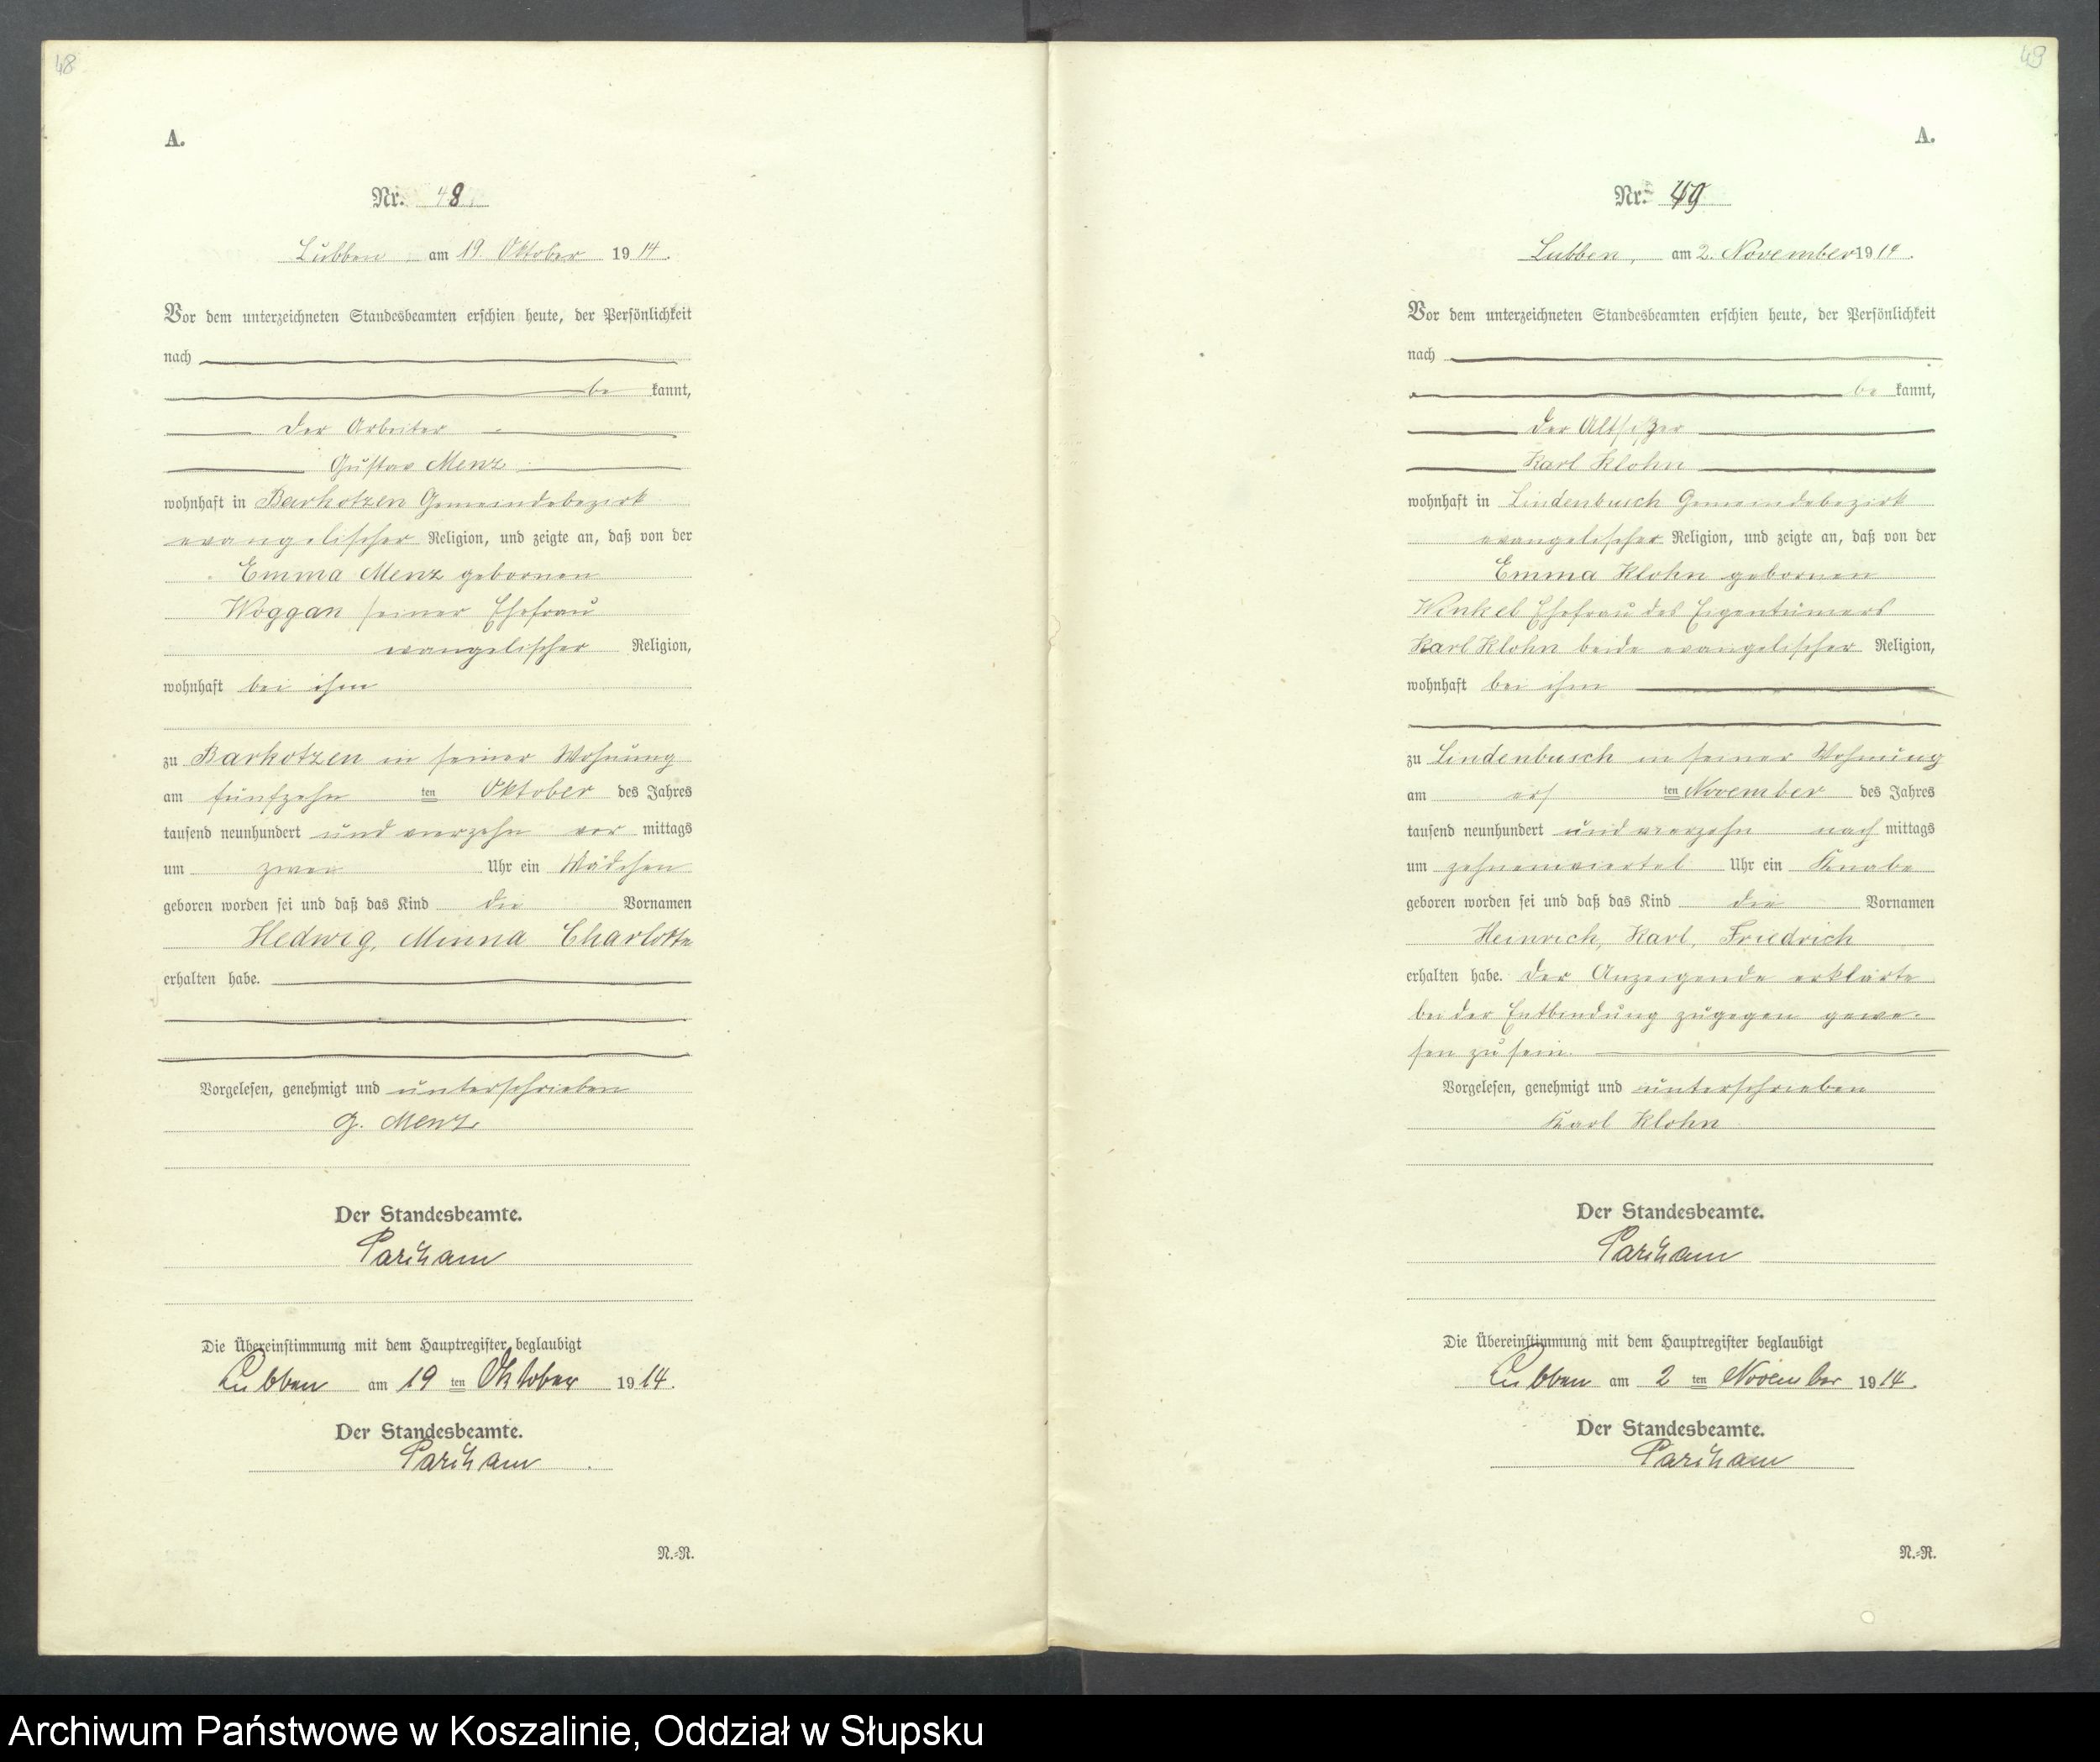 48
A.
Nr. 48
Lübben, am 19. Oktober 1914.
Vor dem unterzeichneten Standesbeamten erschien heute, der Persönlichkeit
nach
be kannt,
der Arbeiter
Gustav Menz
wohnhaft in Barkotzen Gemeindebezirk
evangelischer Religion, und zeigte an, daß von der
Emma Menz gebornen
Woggan seiner Ehefrau
evangelischer Religion,
wohnhaft bei ihm
zu Barkotzen in seiner Wohnung
am fünfzehn ten Oktober des Jahres
tausend neunhundert und vierzehn vor mittags
um zwei Uhr ein Mädchen
geboren worden sei und daß das Kind die Vornamen
Hedwig, Minna Charlotte
erhalten habe.
Vorgelesen, genehmigt und unterschrieben
G. Menz
Der Standesbeamte.
Die Übereinstimmung mit dem Hauptregister beglaubigt
Lübben am 19 ten Oktober 1914.
Der Standesbeamte.
N.-R.
49
A.
Nr. 49
Lubben, am 2. November 1914.
Vor dem unterzeichneten Standesbeamten erschien heute, der Persönlichkeit
nach
be kannt,
der Altsitzer
Karl Klohn
wohnhaft in Lindenbusch Gemeindebezirk
evangelischer Religion, und zeigte an, daß von der
Emma Klohn gebornen
Winkel Ehefrau des Eigentümers
Karl Klohn beide evangelischer Religion,
wohnhaft bei ihm
zu Lindenbusch in seiner Wohnung
am ers ten November des Jahres
tausend neunhundert und vierzehn nach mittags
um zehneinviertel Uhr ein Knabe
geboren worden sei und daß das Kind die Vornamen
Heinrich, Karl, Friedrich
erhalten habe. Der Anzeigende erklärte
bei der Entbindung zugegen gewe-
sen zu sein.
Vorgelesen, genehmigt und unterschrieben
Karl Klohn
Der Standesbeamte.
Die Übereinstimmung mit dem Hauptregister beglaubigt
Lübben am 2 ten November 1914.
Der Standesbeamte.
N.-R.
Archiwum Państwowe w Koszalinie, Oddział w Słupsku